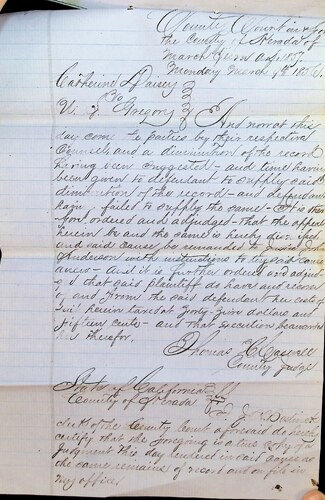 County Court in & for
the County of Nevada of
March Term A.D. 185
Monday March 9th 185
Catherine Daisey
vs
Gregory } And now at this
day come the parties by their respective
Counsel and a diminution of the record
having been suggested - and time having
been given to defendant to supply said
diminution of the record - and defendant
having failed to supply the same - It is there
upon ordered and adjudged - that the appeal
herein be and the same is hereby dis
and said cause be remanded to
Anderson with instructions to try said
And it is further ordered and adjudg
ed that said plaintiff do have and recover
of and from the said defendant her costs of
suit herein taxed at forty-five dollars and
fifteen cents - and that execution
therefor.
Thomas H Caswell
County Judge
State of California } ss
County of Nevada
Clerk of the County Court aforesaid do hereby
certify that the foregoing is a true copy of
Judgment this day rendered in said cause as
the same remains of record and on file in
my office